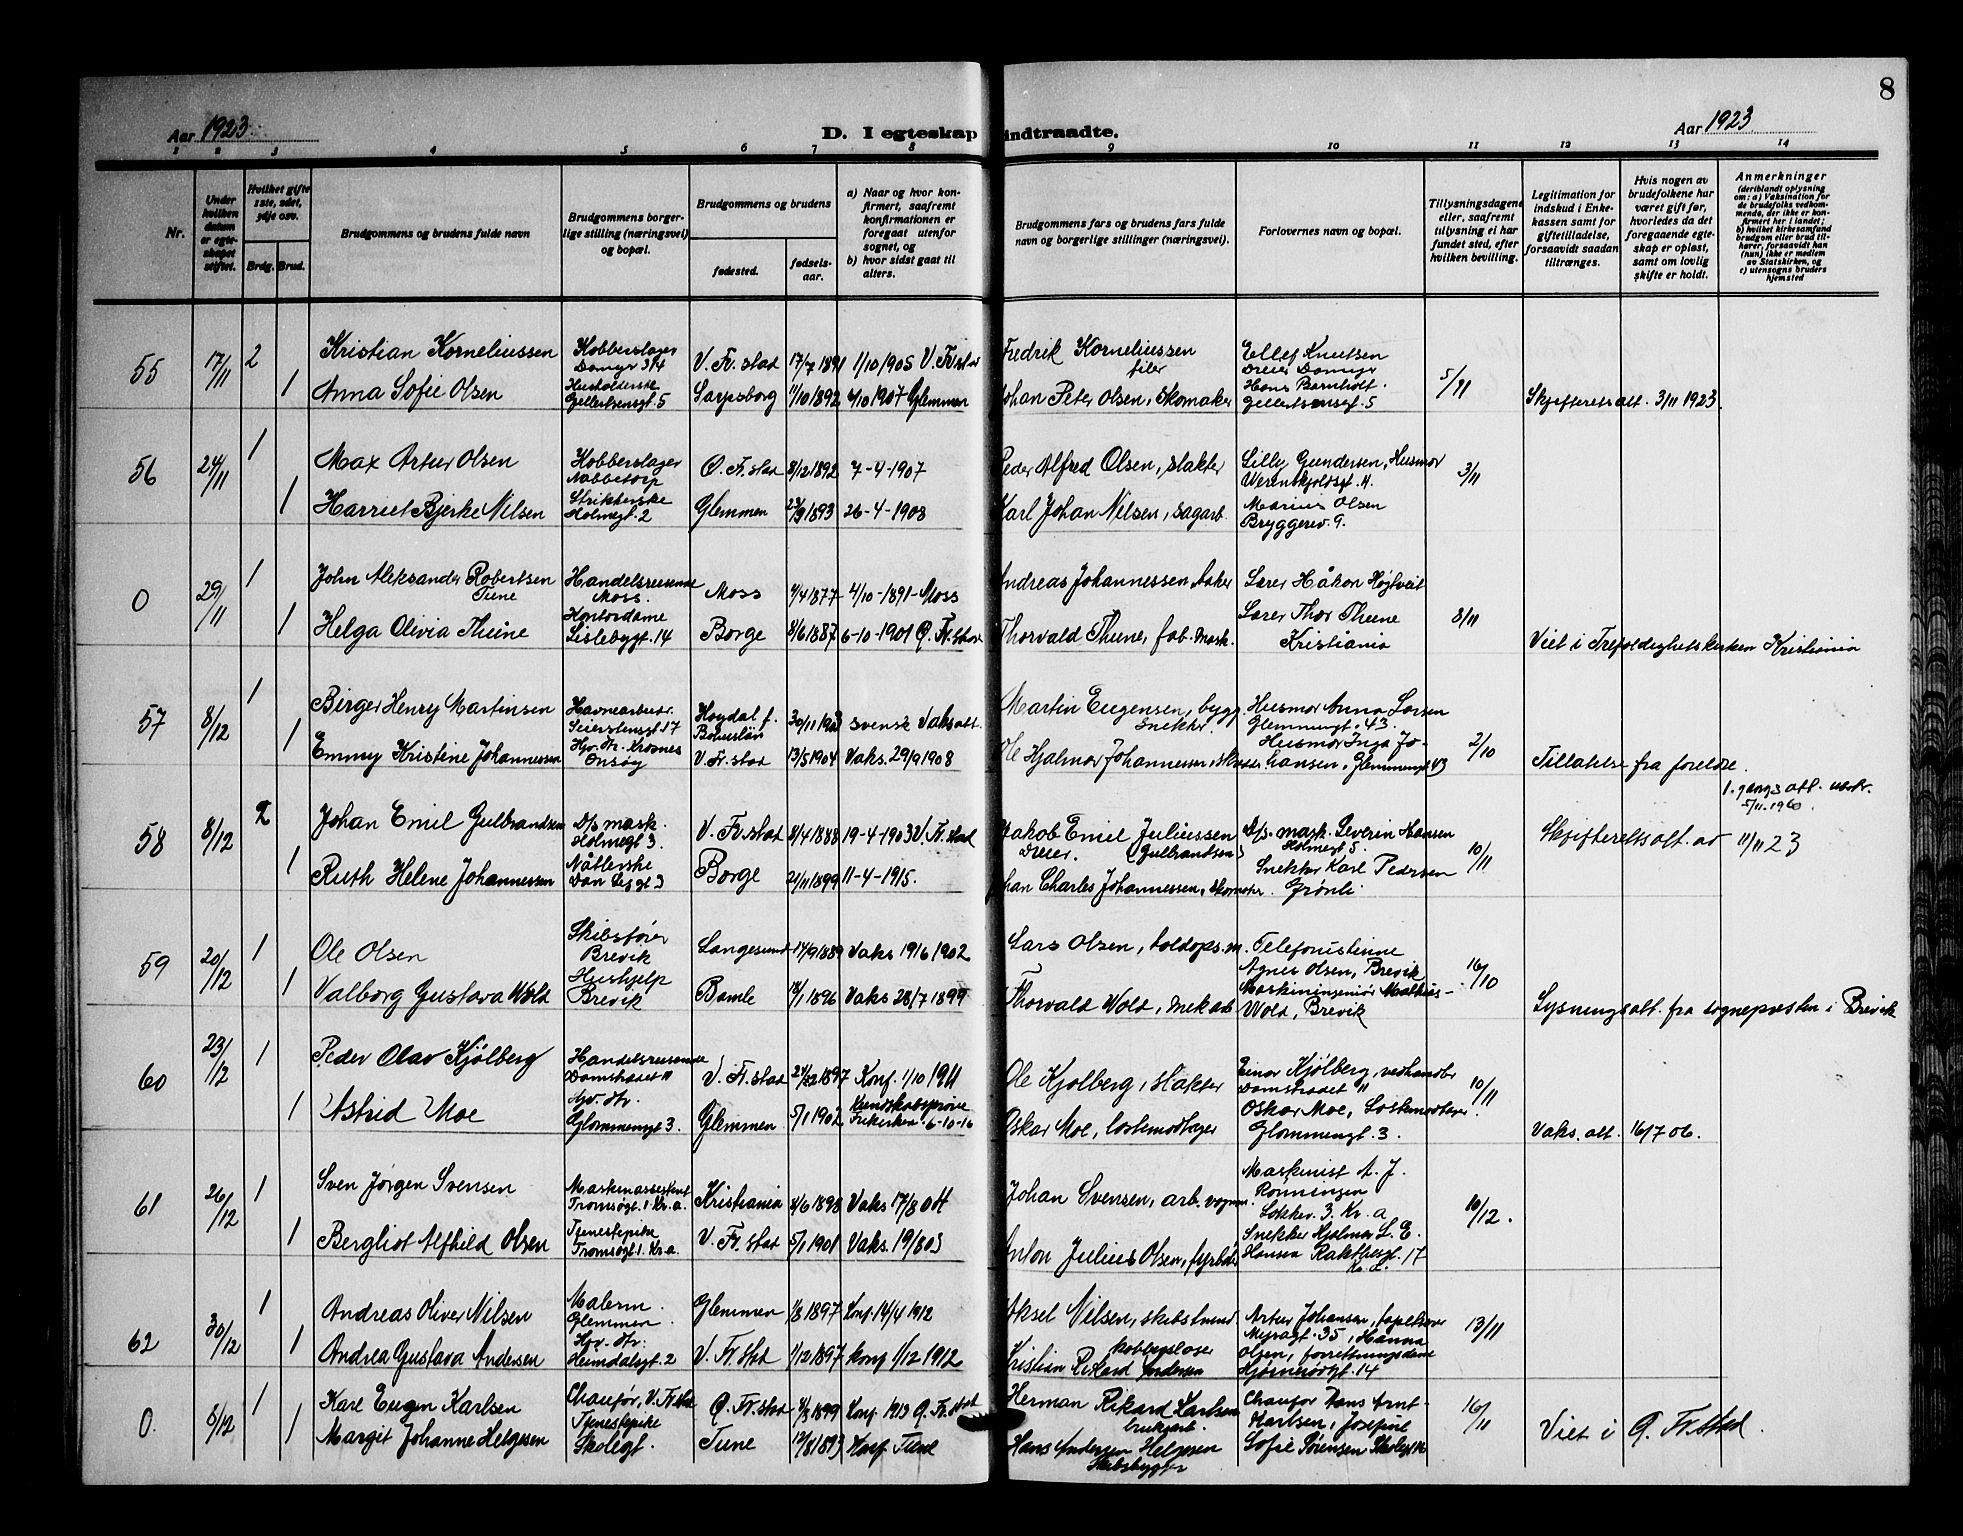 8
Aar 1923.
D. I egteskap indtraadte.
Aar 1923
1 2 3 4 5 6 7 8 9 10 11 12 13 14
Nr.
Under hvilken datum er egteskapet stiftet.
Hvilket gifte 1ste, 2det, 3dje osv.
Brdg. Brud.
Brudgommens og brudens fulde navn
Brudgommens borgerlige stilling (næringsvei) og bopæl.
Brudgommens og brudens
fødested.
fødselsaar.
a) Naar og hvor konfirmert, saafremt konfirmationen er foregaat utenfor sognet, og
b) hvor sidst gaat til alters.
Brudgommens fars og brudens fars fulde navn og borgerlige stillinger (næringsvei).
Forlovernes navn og bopæl.
Tillysningsdagene eller, saafremt tillysning ei har fundet sted, efter hvilken bevilling.
Legitimation for indskud i Enkekassen samt for giftetilladelse, forsaavidt saadan tiltrænges.
Hvis nogen av brudefolkene har været gift før, hvorledes da det foregaaende egteskap er opløst, samt om lovlig skifte er holdt.
Anmerkninger
(deriblandt oplysning om: a) Vaksination for de brudefolks vedkommende, der ikke er konfirmert her i landet; b) hvilket kirkesamfund brudgom eller brud tilhører, forsaavidt han (hun) ikke er medlem av Statskirken, og c) utensogns bruders hjemsted
55 17/11 2 Kristian Korneliussen Kobberslager Damyr 3/4 V. Fr. stad 17/7 1891 1/10 1905 V. Fr stad Fredrik Korneliussen filer Ellef Knutsen Dreier Damyr 5/11
1 Anna Sofie Olsen Husholderske Gellertsensgt. 5 Sarpsborg 11/10 1892 6/10 1907 Glemmen Johan Peter Olsen, Skomaker Hans Barnholt. Gellertsensgt. 5 Skjifteretsatt. 3/11 1923
56 24/11 1 Max Artur Olsen Kobberslager Nabbetorp Ø. Fr. stad 8/12 1892 7-4-1907 Peder Alfred Olsen, slakter Lilly Gundersen, Husmor Werenskjoldsgt. 4. 3/11
1 Harriet Bjerke Nilsen Strikkerske Holmegt. 2 Glemmen 23/9 1893 26-4-1908 Karl Johan Nilsen, sagarb. Marius Olsen Bryggeriv. 9.
0 29/11 1 John Aleksander Robertsen Tune Handelsreisende Moss. Moss 4/4 1877 4/10-1891-Moss Andreas Johannessen, baker Lærer Håkon Højtveit 8/11
1 Helga Olivia Thune Kontordame Lislebygt. 14 Borge 8/6 1887 6-10-1901 Ø. Fr.stad Thorvald Thune, fab. mask. Lærer Thor Thune Kristiania Viet i Trefoldighetskirken Kristiania
57 8/12 1 Birger Henry Martinsen Havnearbeider Seierstensgt 17 Høgdal f. Bohuslän 30/11 1903 svensk Vaksatt. Martin Eugensen, bygg. Snekker. Husmor Anna Larsen Glemmengt. 43. 2/10
1 Emmy Kristine Johannessen Hjv. dtr. Krosnes Onsøy V. Fr. stad 13/5 1904 Vaks. 29/9 1908 Ole Hjalmar Johannessen, Husmor Inga Johansen, Glemmengt 43 Tillatelse fra foreldre.
1. gangs att. utstr. 5/11-1960.
58 8/12 2 Johan Emil Gulbrandsen D/s mask. Holmegt 3. V. Fr. stad 8/4 1888 19-4-1903 V. Fr. stad Jakob Emil Juliussen Dreier. (Gulbrandsen) D/s. mask. Severin Hansen Holmegt 5. 10/11 Skjifteretsatt. av 11/11 23
1 Ruth Helene Johannessen Nåtlerske Borge 21/11 1899 11-4-1915. Johan Charles Johannessen, skomaker Snekker Karl Pedersen Grønli
59 20/12 1 Ole Olsen Skibsfører Brevik Langesund 17/9 1889 Vaks 19/6 1902 Lars Olsen, toldops.m. Telefonistinne Agnes Olsen, Brevik 16/10
1 Valborg Gustava Wold Hushjelp Brevik Bamle 18/1 1896 Vaks 28/7 1899 Thorvald Wold, mek.arb Maskiningeniør Mathias Wold, Brevik Lysningsatt. fra sognepresten i Brevik
60 23/12 1 Peder Olav Kjølberg Handelsreisende Damstredet 11 V. Fr. stad 1897 Konf. 1/10 1911 Ole Kjølberg, slakter Einar Kjølberg, vedhandler Damstredet 11 10/11
1 Astrid Moe Hjv. dtr. Glommengt 3. Glemmen 5/1 1902 Kundskabsprøve Frikirken 6-10-16 Oskar Moe, lostemodtager Oskar Moe, Lostemodtager Glommengt. 3. Vaks. att. 16/7 06.
61 26/12 1 Sven Jørgen Svensen Maskinassistent Tromsøgt. 1 Kr.a. Kristiania 4/6 1898 Vaks 17/8 04 Johan Svensen, arb. vognm. Maskinist A. J. Rønningen Lokkev. 3. Kr. a 10/12.
1 Bergliot Alfhild Olsen Tjenestepike Tromsøgt 1. Kr.a. V. Fr. stad 5/1 1901 Vaks. 19/8 03 Anton Julius Olsen, fyrbøter Snekker Hjalmar L. E. Hansen 17
62 30/12 1 Andreas Oliver Nilsen Malerm. Glemmen Glemmen 1/8 1897 Konf. 14/4 1912 Aksel Nilsen, skibstømmerm. Artur Johansen, Myragt. 35, Hanna 13/11
1 Andrea Gustava Andersen Hjv. dtr. Heimdalsgt. 2 V. Fr. stad 1/12 1897 konf 1/12 1912 Kristian Rikard Andersen Olsen, forretningsdame Hjørnerødgt. 14
0. 8/12 1 Karl Eugen Karlsen Chaufør, V. Fr stad Ø. Fr. stad 4/3 1899 Konf. 1913 Ø. Fr. stad Herman Rikard Karlsen brukarb. Chaufør Hans Arnt Karlsen, Josefine 16/11
1 Margit Johanne Helgesen Tjenestepike Skolegt. Tune 12/8 1893 Konf Tune Hans Andersen Helgesen Skibsbygger Sofie Sørensen Skolegt Viet i Ø. Fr. stad.